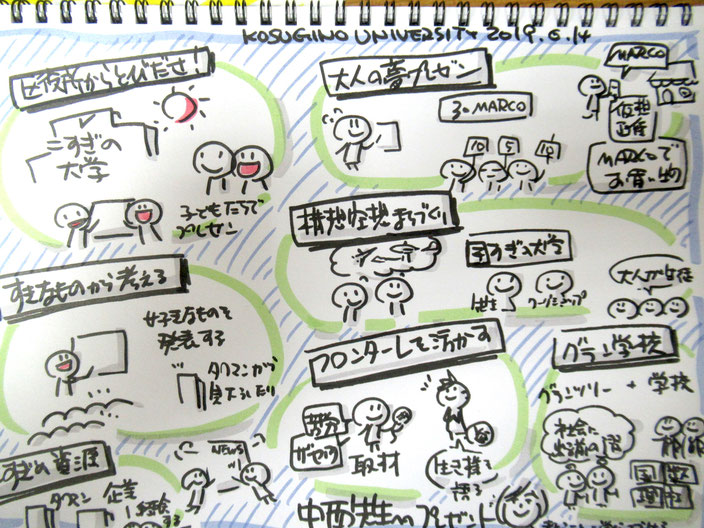 KOSUGINO UNIVERSITY 2019.6.14
区役所からとびだせ!
こすぎの
大学
子どもたちで
プレゼン
大人の夢プレゼン
MARCO
10
5
10
MARCOで
お買い物
構想空想まちづくり
こすぎの大学
先生
ワークショップ
大人が生徒
すきなものから考える
好きなものを
発表する
タワマンから
見下ろしたり
フロンターレを活かす
取材
生き様を
語る
グラン学校
グランツリー + 学校
社会に
国
理
すぎの資源
タワマン
企業
NEWS
中西先生へプレゼント